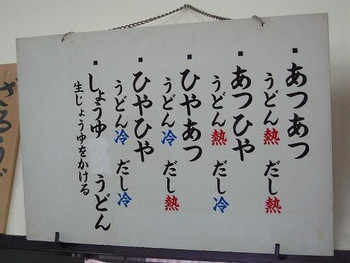 あつあつ
うどん熱 だし熱
あつひや
うどん熱 だし冷
ひやあつ
うどん冷 だし熱
ひやひや
うどん冷 だし冷
しょうゆうどん
生じょうゆをかける
ざるうど